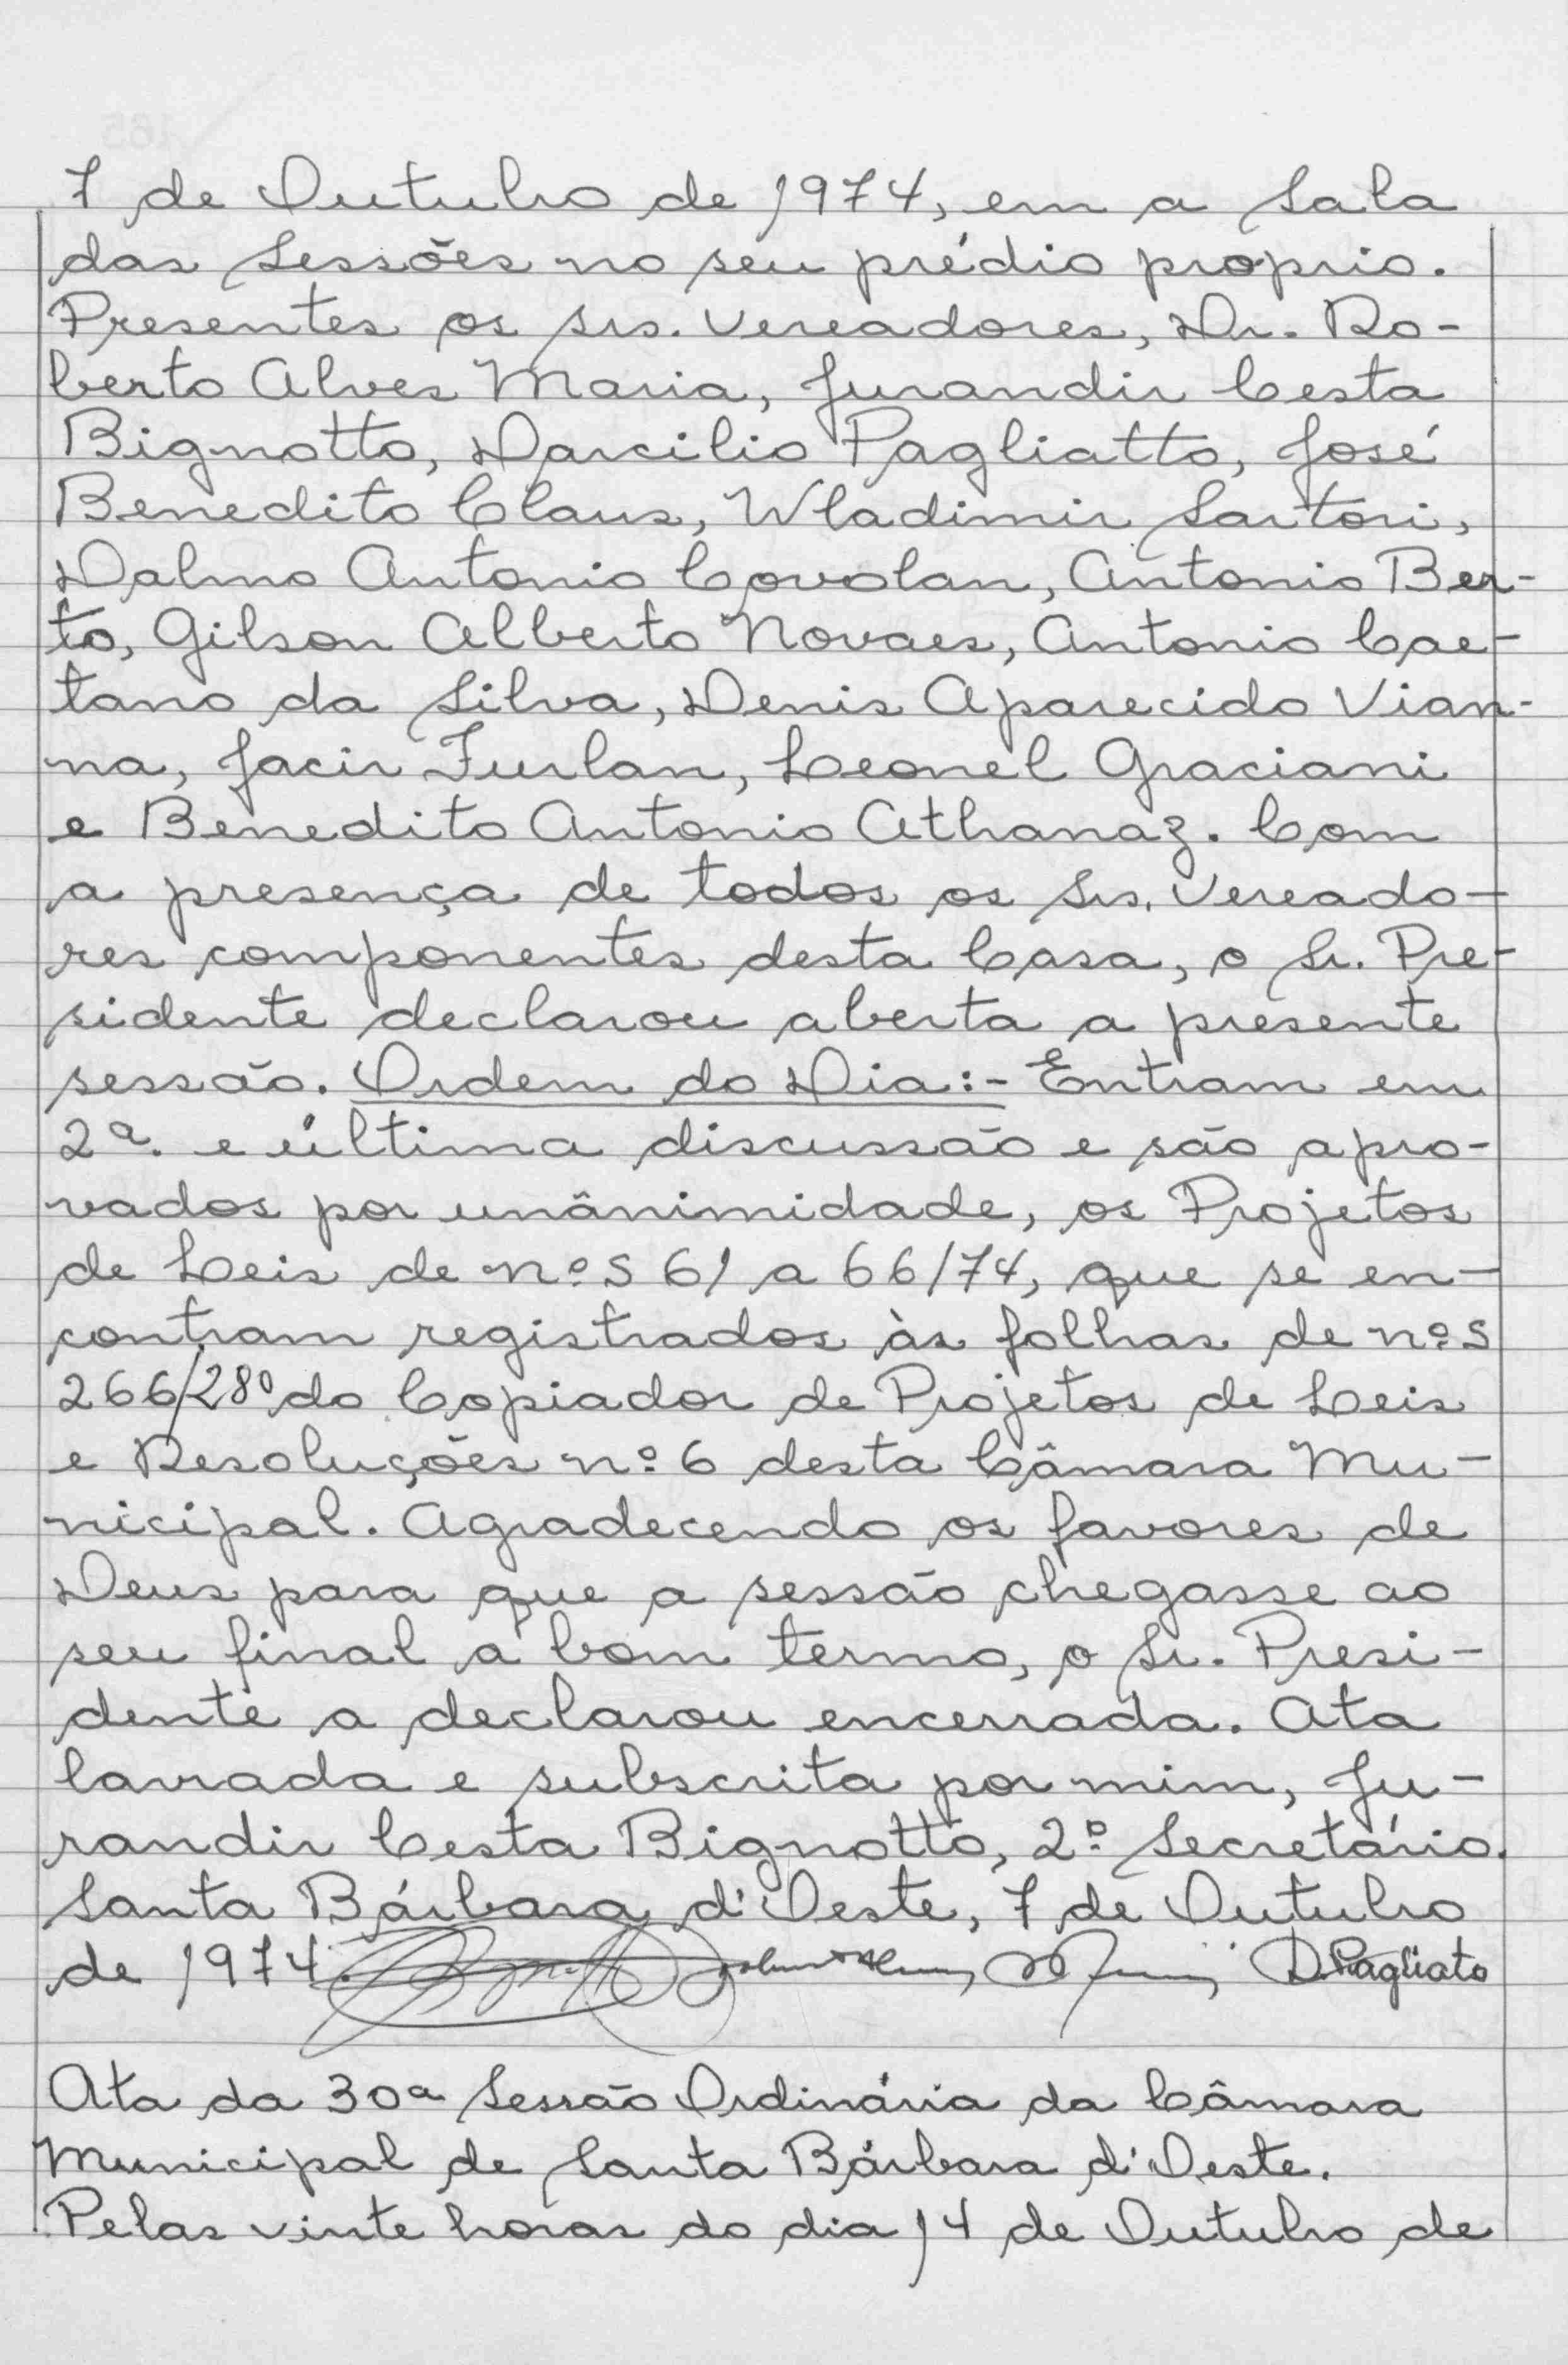 7 de Outubro de 1974, em a Sala
das Sessões no seu prédio proprio.
Presentes os srs. Vereadores, Dr. Ro-
berto Alves Maria, Jurandir Cesta
Bignotto, Darcilio Pagliatto, José
Benedito Claus, Wladimir Sartori,
Dalmo Antonio Covolan, Antonio Ber-
to, Gilson Alberto Novaes, Antonio Cae-
tano da Silva, Denis Aparecido Vian-
na, Jacir Furlan, Leonel Graciani
e Benedito Antonio Athanaz. Com
a presença de todos os Srs. Vereado-
res componentes desta Casa, o Sr. Pre-
sidente declarou aberta a presente
sessão. Ordem do Dia:- Entram em
2ª. e última discussão e são apro-
vados por unânimidade, os Projetos
de Leis de nºs 61 a 66/74, que se en-
contram registrados às folhas de nºs
266/280 do Copiador de Projetos de Leis
e Resoluções nº 6 desta Câmara Mu-
nicipal. Agradecendo os favores de
Deus para que a sessão chegasse ao
seu final a bom termo, o Sr. Presi-
dente a declarou encerrada. Ata
lavrada e subscrita por mim, Ju-
randir Cesta Bignotto, 2º Secretário.
Santa Bárbara d'Oeste, 7 de Outubro
de 1974. D. Pagliato
Ata da 30ª Sessão Ordinária da Câmara
Municipal de Santa Bárbara d'Oeste.
Pelas vinte horas do dia 14 de Outubro de